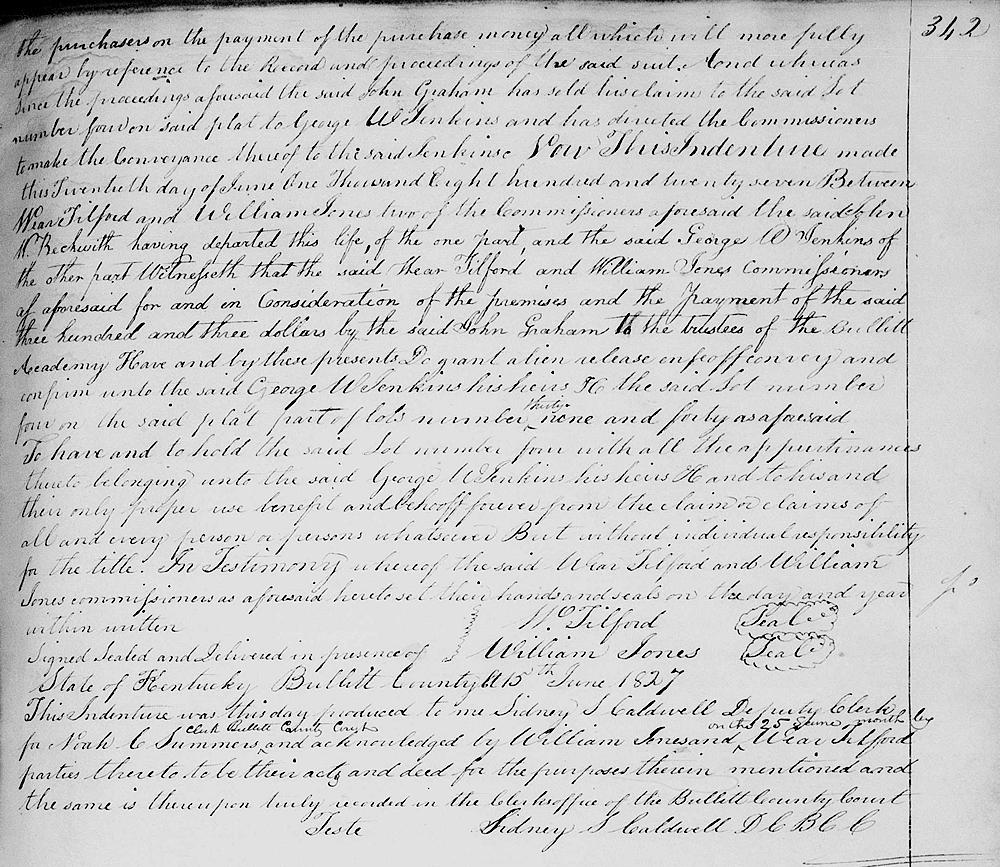 342
the purchasers on the payment of the purchase money all which will more fully
appear by reference to the Record and proceedings of the said suit. And whereas
since the proceedings aforesaid the said John Graham has sold his claim to the said Lot
number four on said plat to George W Jenkins and has directed the Commissioners
to make the Conveyance thereof to the said Jenkins Now This Indenture made
this Twentieth day of June One Thousand Eight hundred and twenty seven Between
Wear Tilford and William Jones two of the Commissioners aforesaid the said John
W. Beckwith having departed this life, of the one part, and the said George W Jenkins of
the other part Witnesseth that the said Wear Tilford and William Jones Commissioners
as aforesaid for and in Consideration of the premises and the Payment of the said
three hundred and three dollars by the said John Graham to the trustees of the Bullitt
Academy Have and by these presents Do grant alien release enfeoff convey and
confirm unto the said George W Jenkins his heirs &c the said Lot number
four on the said plat part of lots number thirty nine and forty as aforesaid
To have and to hold the said Lot number four with all the appurtinances
thereto belonging unto the said George W Jenkins his heirs &c and to his and
their only proper use benefit and behooff forever from the claim or claims of
all and every person or persons whatsoever But without individual responsibility
for the title. In Testimony whereof the said Wear Tilford and William
Jones commissioners as aforesaid hereto set their hands and seals on the day and year
within written
Signed Sealed and Delivered in presence of
Wr Tilford Seal
William Jones Seal
State of Kentucky Bullitt County Ct 15th June 1827
This Indenture was this day produced to me Sidney S Caldwell Deputy Clerk
for Noah C Summers Clerk Bullitt County Court and acknowledged by William Jones and on the 25 June month by Wear Tilford
parties thereto to be their acts and deed for the purposes therein mentioned and
the same is thereupon truly recorded in the Clerks office of the Bullitt County Court
Teste Sidney S Caldwell D C B C C